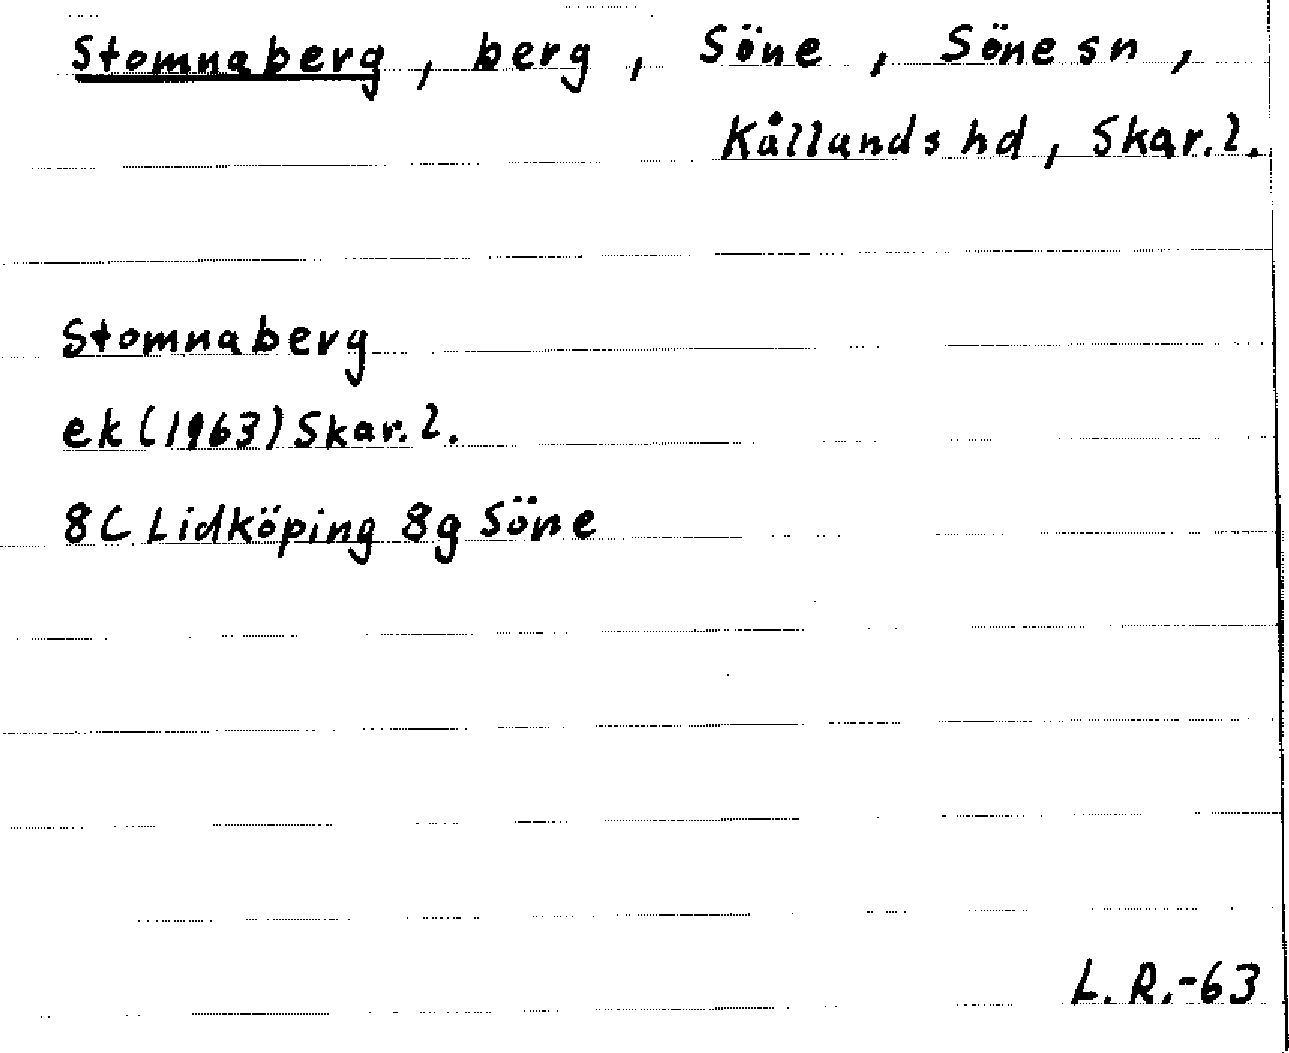 Stomnaberg, berg, Söne, Söne sn,
Kållands hd, Skar.l.
Stomnaberg
ek (1963) Skar.l.
8C Lidköping 8g Söne
L. R.-63